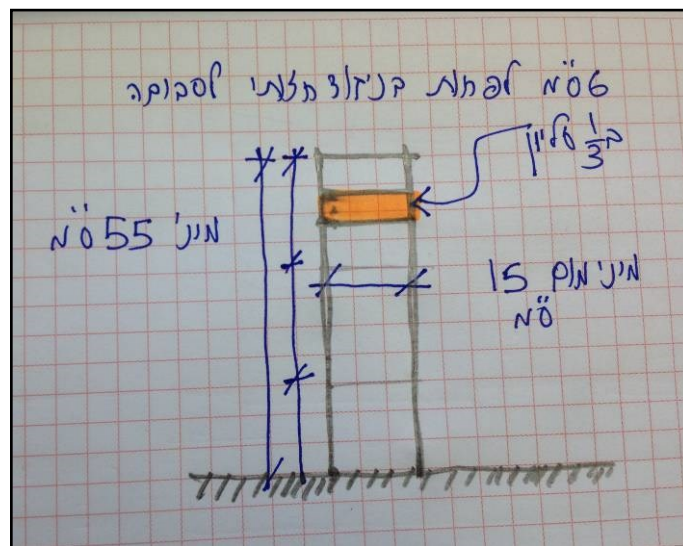 6 ס"מ לפחות בניגוד חזותי לסביבה
ב 1/3 עליון
מינ' 55 ס"מ
מינימום 15
ס"מ